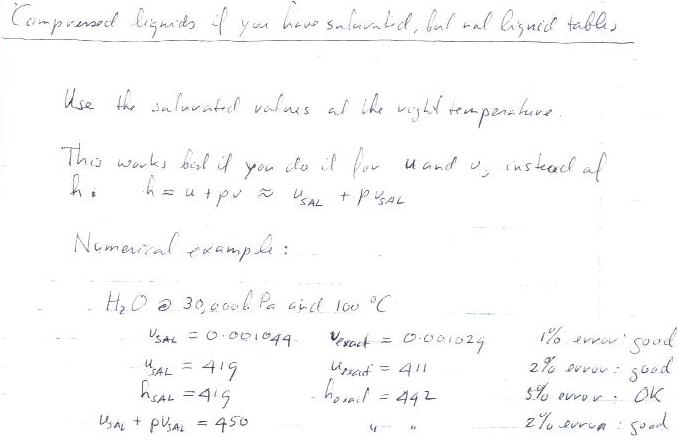 Compressed liquids if you have saturated, but not liquid tables
Use the saturated values at the right temperature.
This works best if you do it for u and v, instead of
h. h = u + pv ≈ u_SAT + p v_SAT
Numerical example:
H₂O @ 30,000 k Pa and 100 °C
v_SAT = 0.001044 v_exact = 0.001029 1% error: good
u_SAT = 419 u_exact = 411 2% error: good
h_SAT = 419 h_exact = 442 5% error: OK
u_SAT + p v_SAT = 450 " " 2% error: good